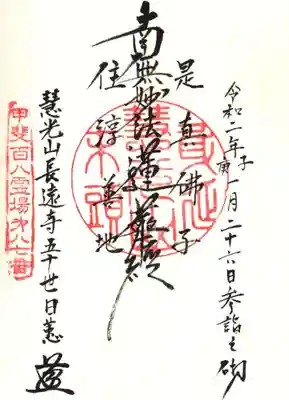 令和二年庚子一月二十六日参詣之砌
是真佛子
南無妙法蓮華經
住淳善地
慧光山長遠寺五十世日慈
甲斐百八霊場第八七番